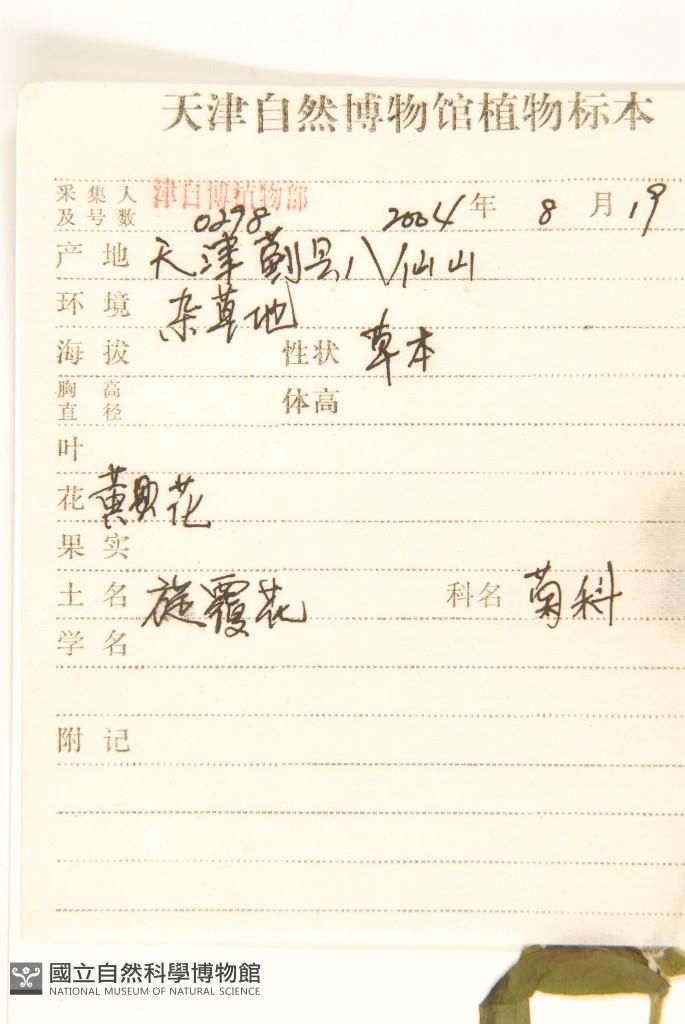 天津自然博物馆植物标本
采集人 津自博植物部
及号数 0278 2004年 8月19
产地 天津蓟县八仙山
环境 杂草地
海拔 性状 草本
胸高
直径 体高
叶
花 黄色花
果实
土名 旋覆花 科名 菊科
学名
附记
國立自然科學博物館
NATIONAL MUSEUM OF NATURAL SCIENCE